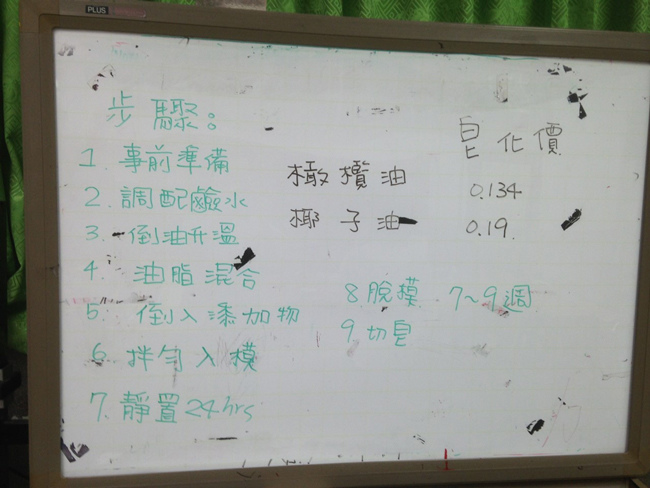 PLUS
步驟:
1. 事前準備
2. 調配鹼水
3. 倒油升溫
4. 油脂混合
5. 倒入添加物
6. 拌勻入模
7. 靜置24hrs
皂化價
橄欖油 0.134
椰子油 0.19
8 脫模 7~9週
9 切皂